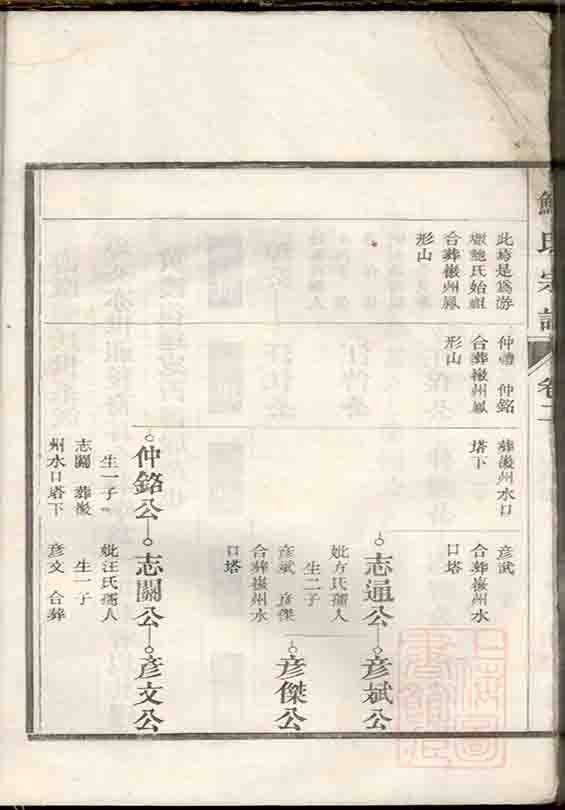 鮑氏宗譜
卷二
此塝是爲游
墩鮑氏始祖
合葬徽州鳳
形山
仲禮 仲銘
合葬徽州鳳
形山
葬徽州水口
塔下
彦武
合葬徽州水
口塔
志通公
妣方氏孺人
生二子
彦斌 彦傑
合葬徽州水
口塔
彦斌公
彦傑公
仲銘公
生一子
志闢 葬徽
州水口塔下
志闢公
妣汪氏孺人
生一子
彦文 合葬
彦文公